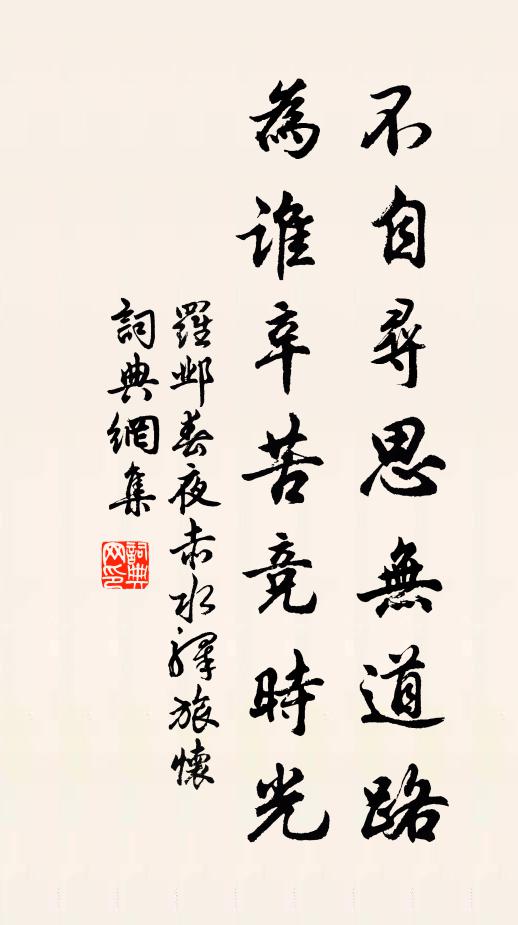 不自尋思無道路
為誰辛苦竞時光
羅鄴春夜赤水驛旅懷
詞典網集
詞典网印